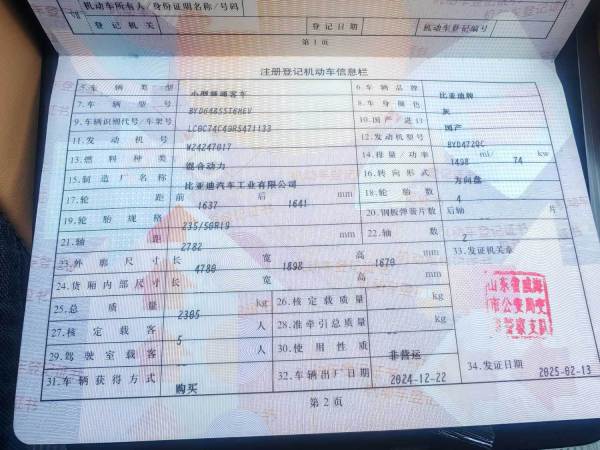 机动车所有人/身份证明名称/号码
登记机关 登记日期 机动车登记编号
第1页
注册登记机动车信息栏
5.车辆类型 小型普通客车 6.车辆品牌 比亚迪牌
7.车辆型号 BYD6485ST6HEV 8.车身颜色 灰
9.车辆识别代号/车架号 LC0C74C49R5471133 10.国产/进口 国产
11.发动机号 W24247017 12.发动机型号 BYD472QC
13.燃料种类 混合动力 14.排量/功率 1498 ml/ 74 kw
15.制造厂名称 比亚迪汽车工业有限公司 16.转向形式 方向盘
17.轮距 前 1637 后 1641 mm 18.轮胎数 4
19.轮胎规格 235/50R19 20.钢板弹簧片数 后轴 片
21.轴距 2782 mm 22.轴数 2
23.外廓尺寸 长 4780 宽 1898 高 1670 mm 33.发证机关章
24.货厢内部尺寸 长 宽 高 mm
25.总质量 2305 kg 26.核定载质量 kg
27.核定载客 5 人 28.准牵引总质量 kg
29.驾驶室载客 人 30.使用性质 非营运
31.车辆获得方式 购买 32.车辆出厂日期 2024-12-22 34.发证日期 2025-02-13
山东省威海
市公安局交
警察支队
第2页